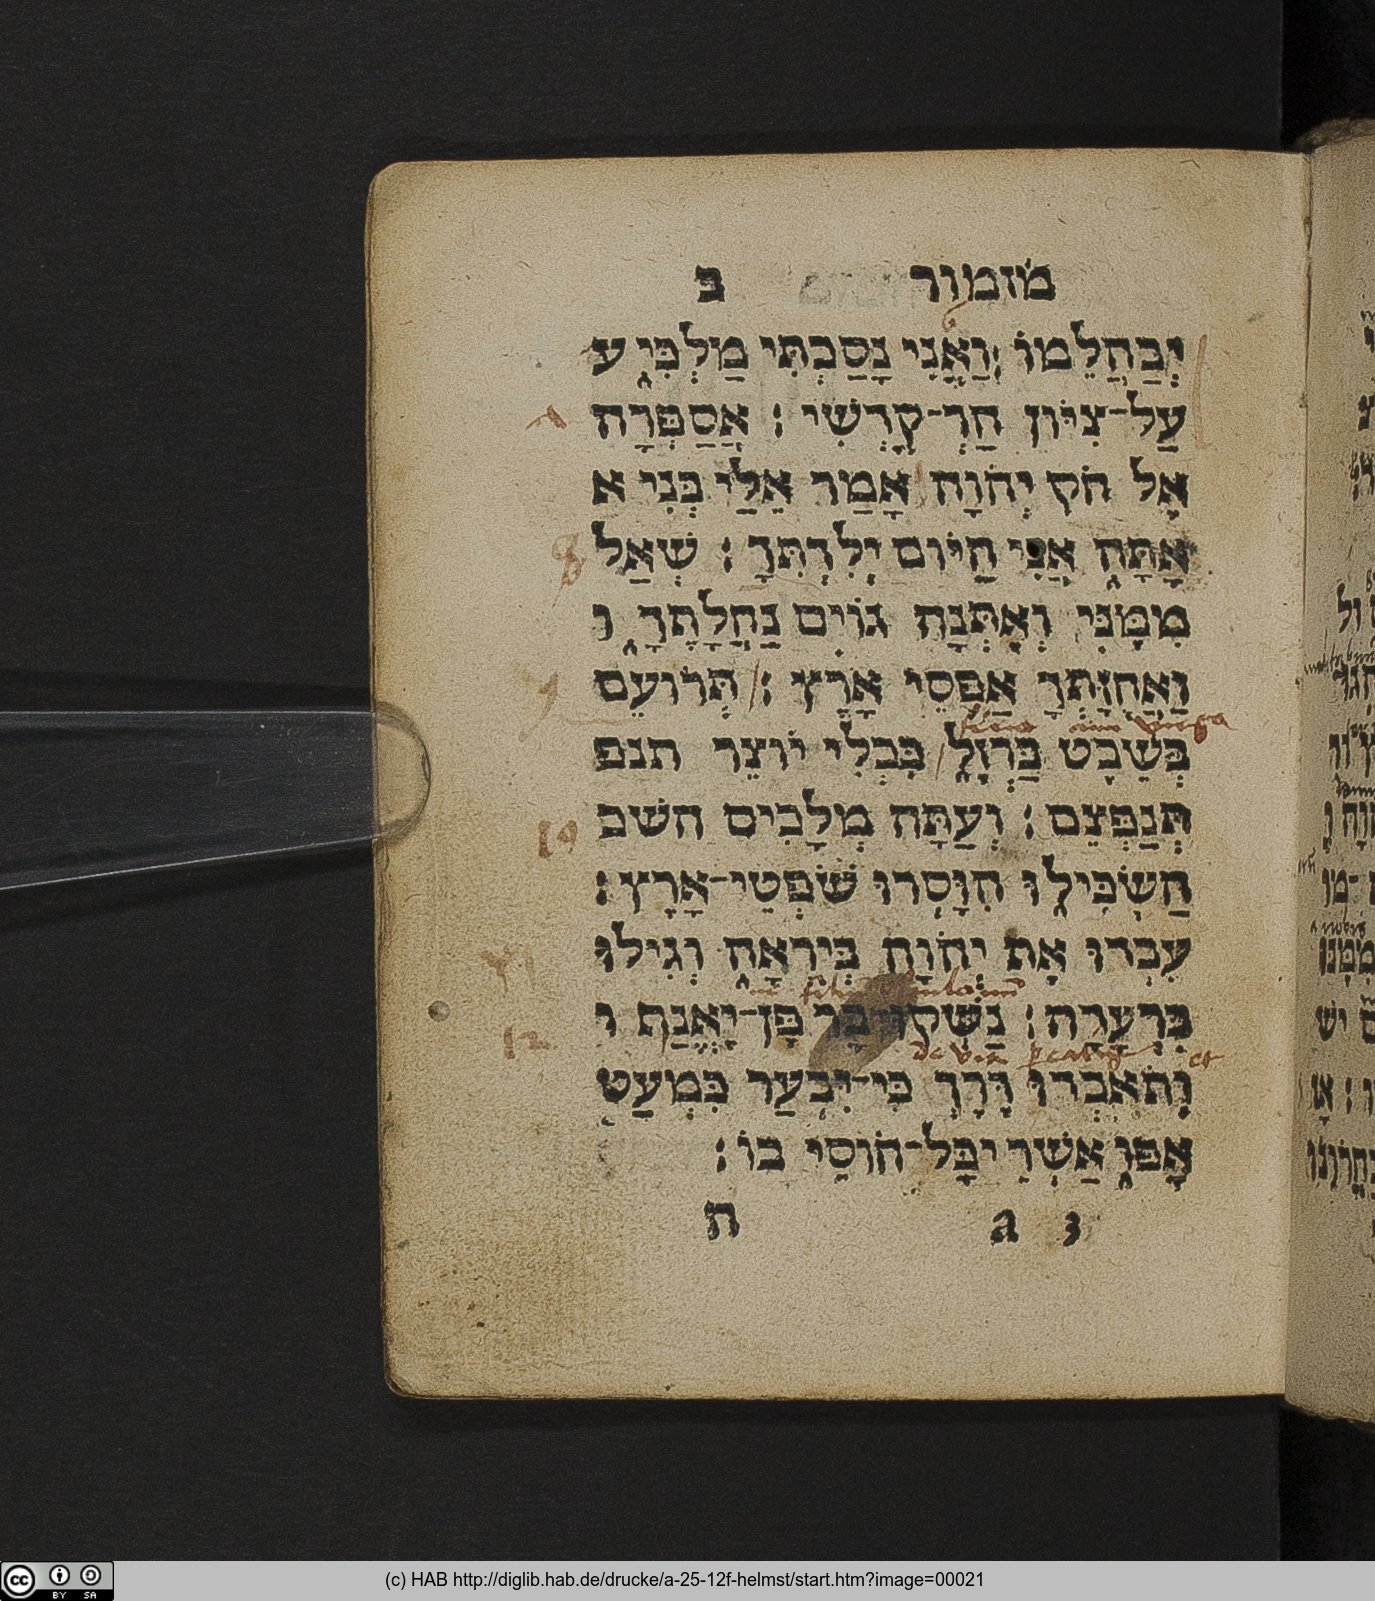 מזמור ב
יְבַהֲלֵמוֹ׃ וַאֲנִי נָסַכְתִּי מַלְכִּי ע
עַל־צִיּוֹן הַר־קָדְשִׁי׃ אֲסַפְּרָה
אֶל חֹק יְהֹוָה אָמַר אֵלַי בְּנִי א
אַתָּה אֲנִי הַיּוֹם יְלִדְתִּךָ׃ שְׁאַל
מִמֶּנִּי וְאֶתְּנָה גוֹיִם נַחֲלָתֶךָ ו
וַאֲחֻזָּתְךָ אַפְסֵי אָרֶץ׃ תְּרוֹעֵם
בְּשֵׁבֶט בַּרְזֶל כִּכְלִי יוֹצֵר תנפ
תְּנַפְּצֵם׃ וְעַתָּה מְלָכִים השכ
הַשְׂכִּילוּ הִוָּסְרוּ שֹׁפְטֵי־אָרֶץ׃
עִבְדוּ אֶת יְהֹוָה בְּיִרְאָה וְגִילוּ
בִּרְעָדָה׃ נַשְּׁקוּ־בַר פֶּן־יֶאֱנַף ו
וְתֹאבְדוּ דֶרֶךְ כִּי־יִבְעַר כִּמְעַט
אַפּוֹ אַשְׁרֵי כָּל־חוֹסֵי בוֹ׃
ג ה
6
8
9
10
11
12
(c) HAB http://diglib.hab.de/drucke/a-25-12f-helmst/start.htm?image=00021
CC BY SA